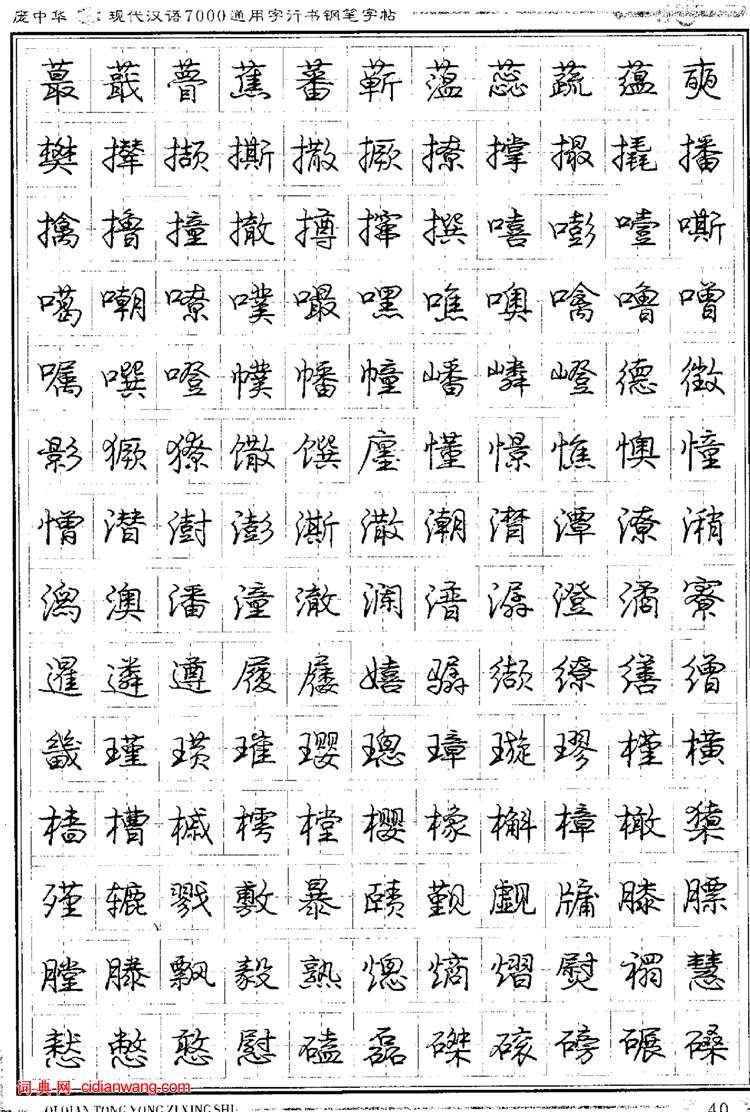 庞中华 : 现代汉语7000通用字行书钢笔字帖
蕞 蕺 瞢 蕉 蕃 蕲 蕰 蕊 蔬 蕴 奭
樊 撵 撷 撕 撒 撅 撩 撑 撮 撬 播
擒 撸 撞 撤 撙 撺 撰 嘻 嘭 噎 嘶
噶 嘲 嘹 噗 嘬 嘿 噍 噢 噙 噜 噌
嘱 噀 噔 幞 幡 幢 嶓 嶙 嶝 德 徵
影 獗 獠 馓 馔 廛 懂 憬 憔 懊 憧
憎 潜 澍 澎 澌 潵 潮 潸 潭 潦 潲
潟 澳 潘 潼 澈 澜 潽 潺 澄 潏 寮
暹 遴 遵 履 屦 嬉 骣 缬 缭 缮 缯
畿 瑾 璜 璀 璎 璁 璋 璇 璆 槿 横
樯 槽 槭 樗 樘 樱 橡 槲 樟 橄 橥
殣 辘 戮 敷 暴 赜 觐 觑 牖 膝 膘
膛 滕 飘 毅 熟 熜 熵 熠 熨 褟 慧
憖 憋 憨 慰 磕 磊 磔 磙 磅 碾 磉
词典网 cidianwang.com